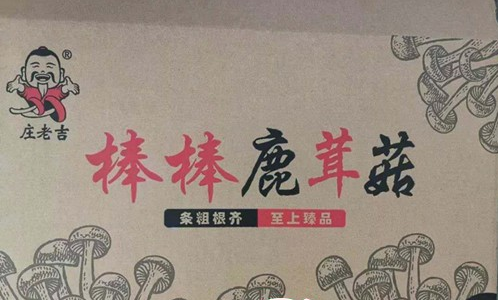 ®
庄老吉
棒棒鹿茸菇
条粗根齐 至上臻品